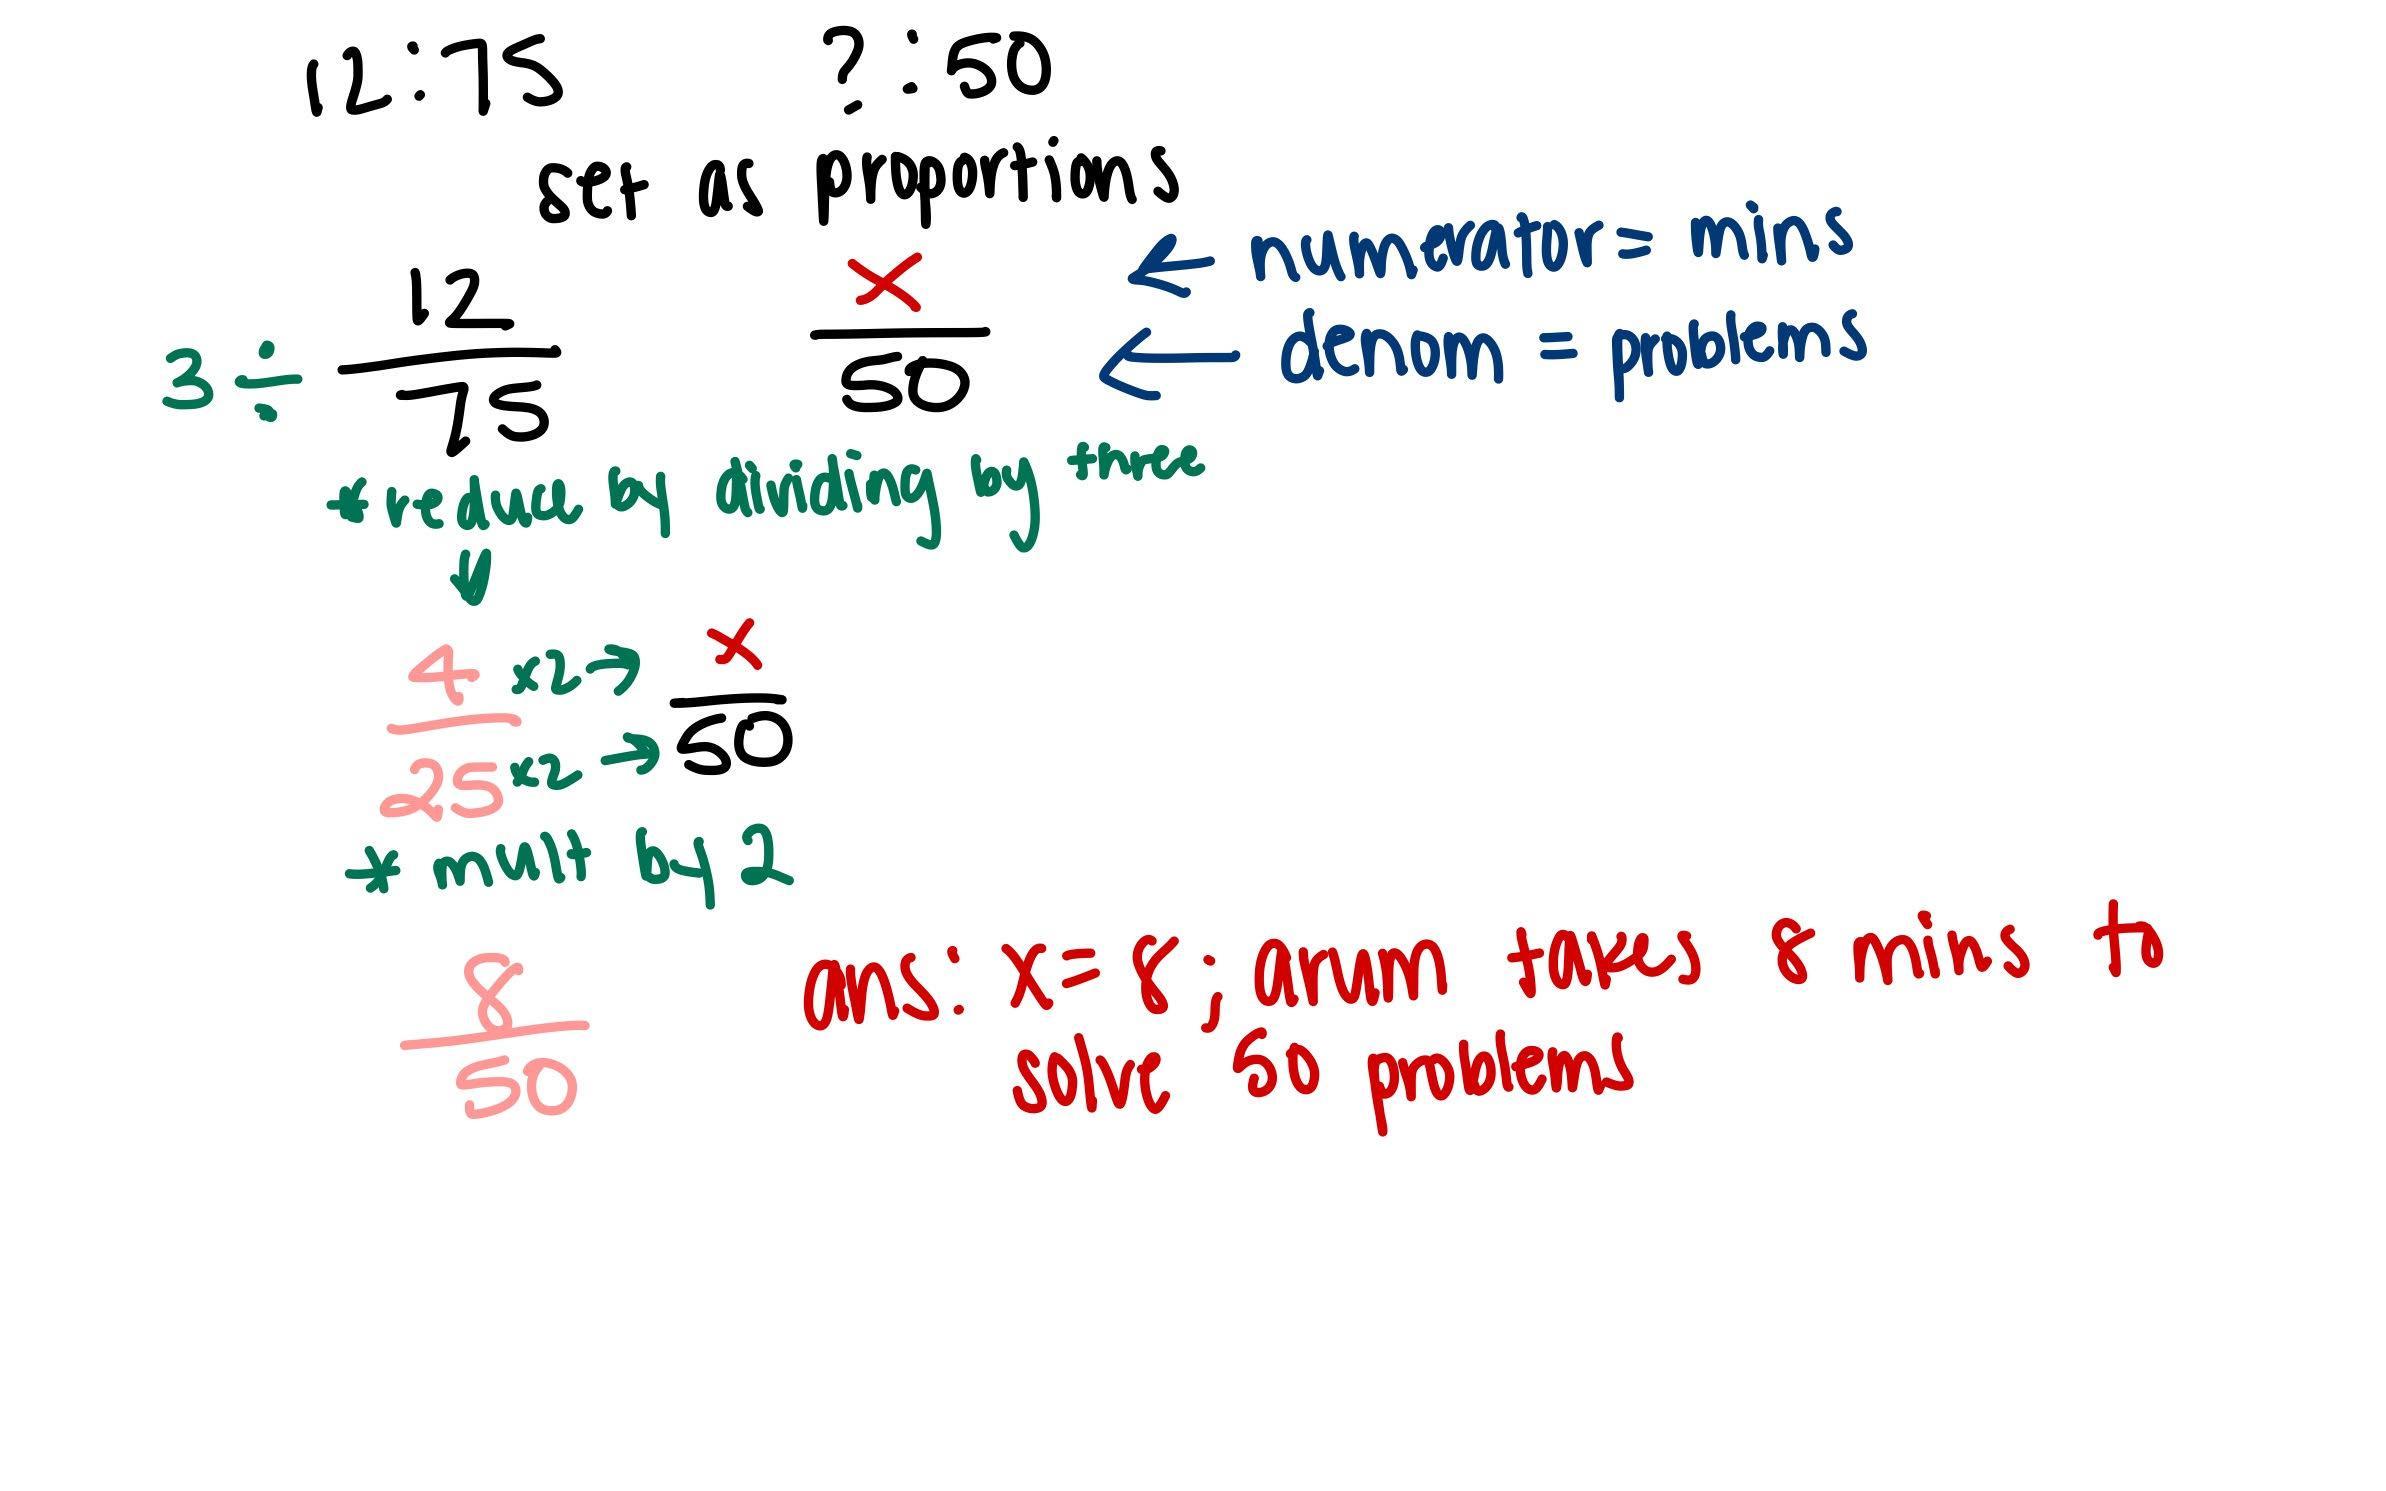 12:75 ?:50
set as proportions
12/75 x/50
← numerator = mins
← denom = problems
3 ÷
* reduce by dividing by three
↓
4 x2 → x
25 x2 → 50
* mult by 2
8/50
ans: x=8; arum takes 8 mins to
solve 50 problems